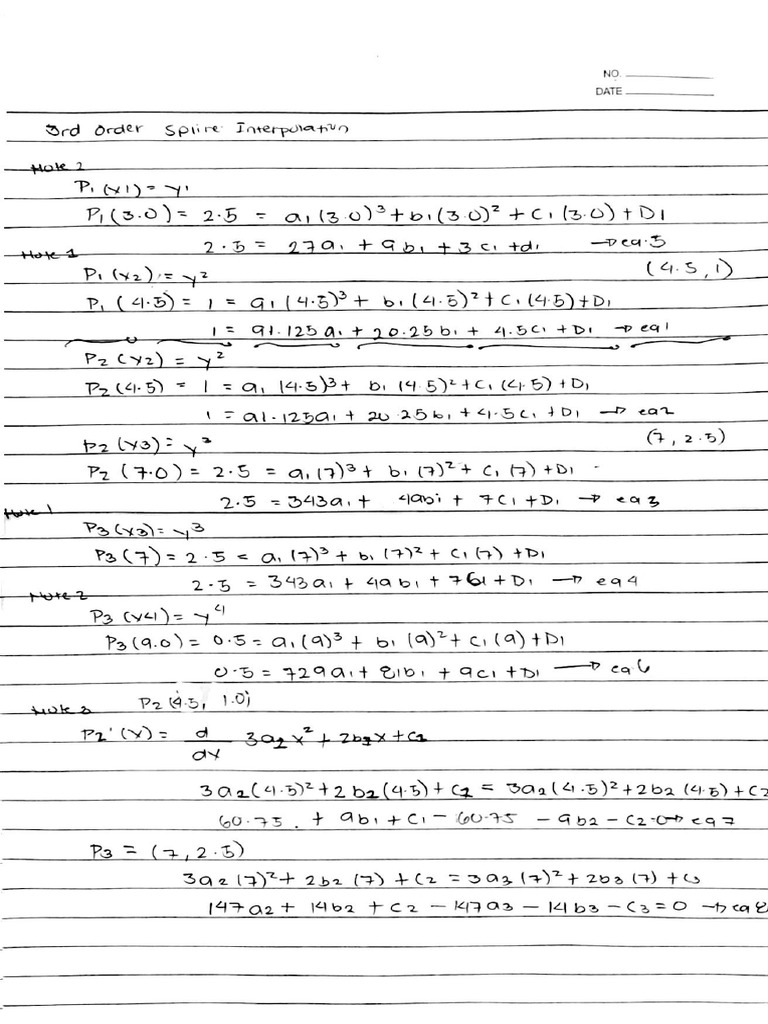 NO.
DATE
3rd Order Spline Interpolation
Note 2
P₁(x1) = y¹
P₁(3.0) = 2.5 = a₁(3.0)³ + b₁(3.0)² + C₁(3.0) + D1
2.5 = 27a₁ + 9b₁ + 3c₁ + d₁ → eq.5
Note 1
P₁(x2) = y²
(4.5, 1)
P₁(4.5) = 1 = a₁(4.5)³ + b₁(4.5)² + C₁(4.5) + D₁
1 = 91.125a₁ + 20.25b₁ + 4.5c₁ + D₁ → eq1
P₂(x2) = y²
P₂(4.5) = 1 = a₁(4.5)³ + b₁(4.5)² + C₁(4.5) + D₁
1 = 91.125a₁ + 20.25b₁ + 4.5c₁ + D₁ → eq2
P₂(x3) = y³
(7, 2.5)
P₂(7.0) = 2.5 = a₁(7)³ + b₁(7)² + C₁(7) + D₁
2.5 = 343a₁ + 49b₁ + 7C₁ + D₁ → eq3
Note 1
P₃(x3) = y³
P₃(7) = 2.5 = a₁(7)³ + b₁(7)² + C₁(7) + D₁
2.5 = 343a₁ + 49b₁ + 7C₁ + D₁ → eq4
Note 2
P₃(x4) = y⁴
P₃(9.0) = 0.5 = a₁(9)³ + b₁(9)² + C₁(9) + D₁
0.5 = 729a₁ + 81b₁ + 9C₁ + D₁ → eq6
Note 3 P₂(4.5, 1.0)
P₂'(x) = d/dx 3a₂x² + 2b₂x + C₂
3a₂(4.5)² + 2b₂(4.5) + C₂ = 3a₂(4.5)² + 2b₂(4.5) + C₂
60.75 + 9b₁ + C₁ - 60.75 - 9b2 - C2=0 → eq7
P₃ = (7, 2.5)
3a₂(7)² + 2b₂(7) + C₂ = 3a₃(7)² + 2b₃(7) + C₃
147a₂ + 14b₂ + C₂ - 147a₃ - 14b₃ - C₃ = 0 → eq8